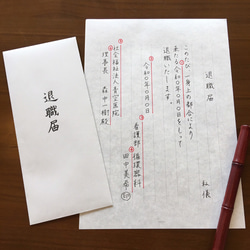 退職届
退職届
私儀
このたび一身上の都合により
来たる令和〇年〇月〇日をもって
退職いたします。
令和〇年〇月〇日
看護部 循環器科
田中美奈
社会福祉法人青空医院
理事長 森中一樹殿